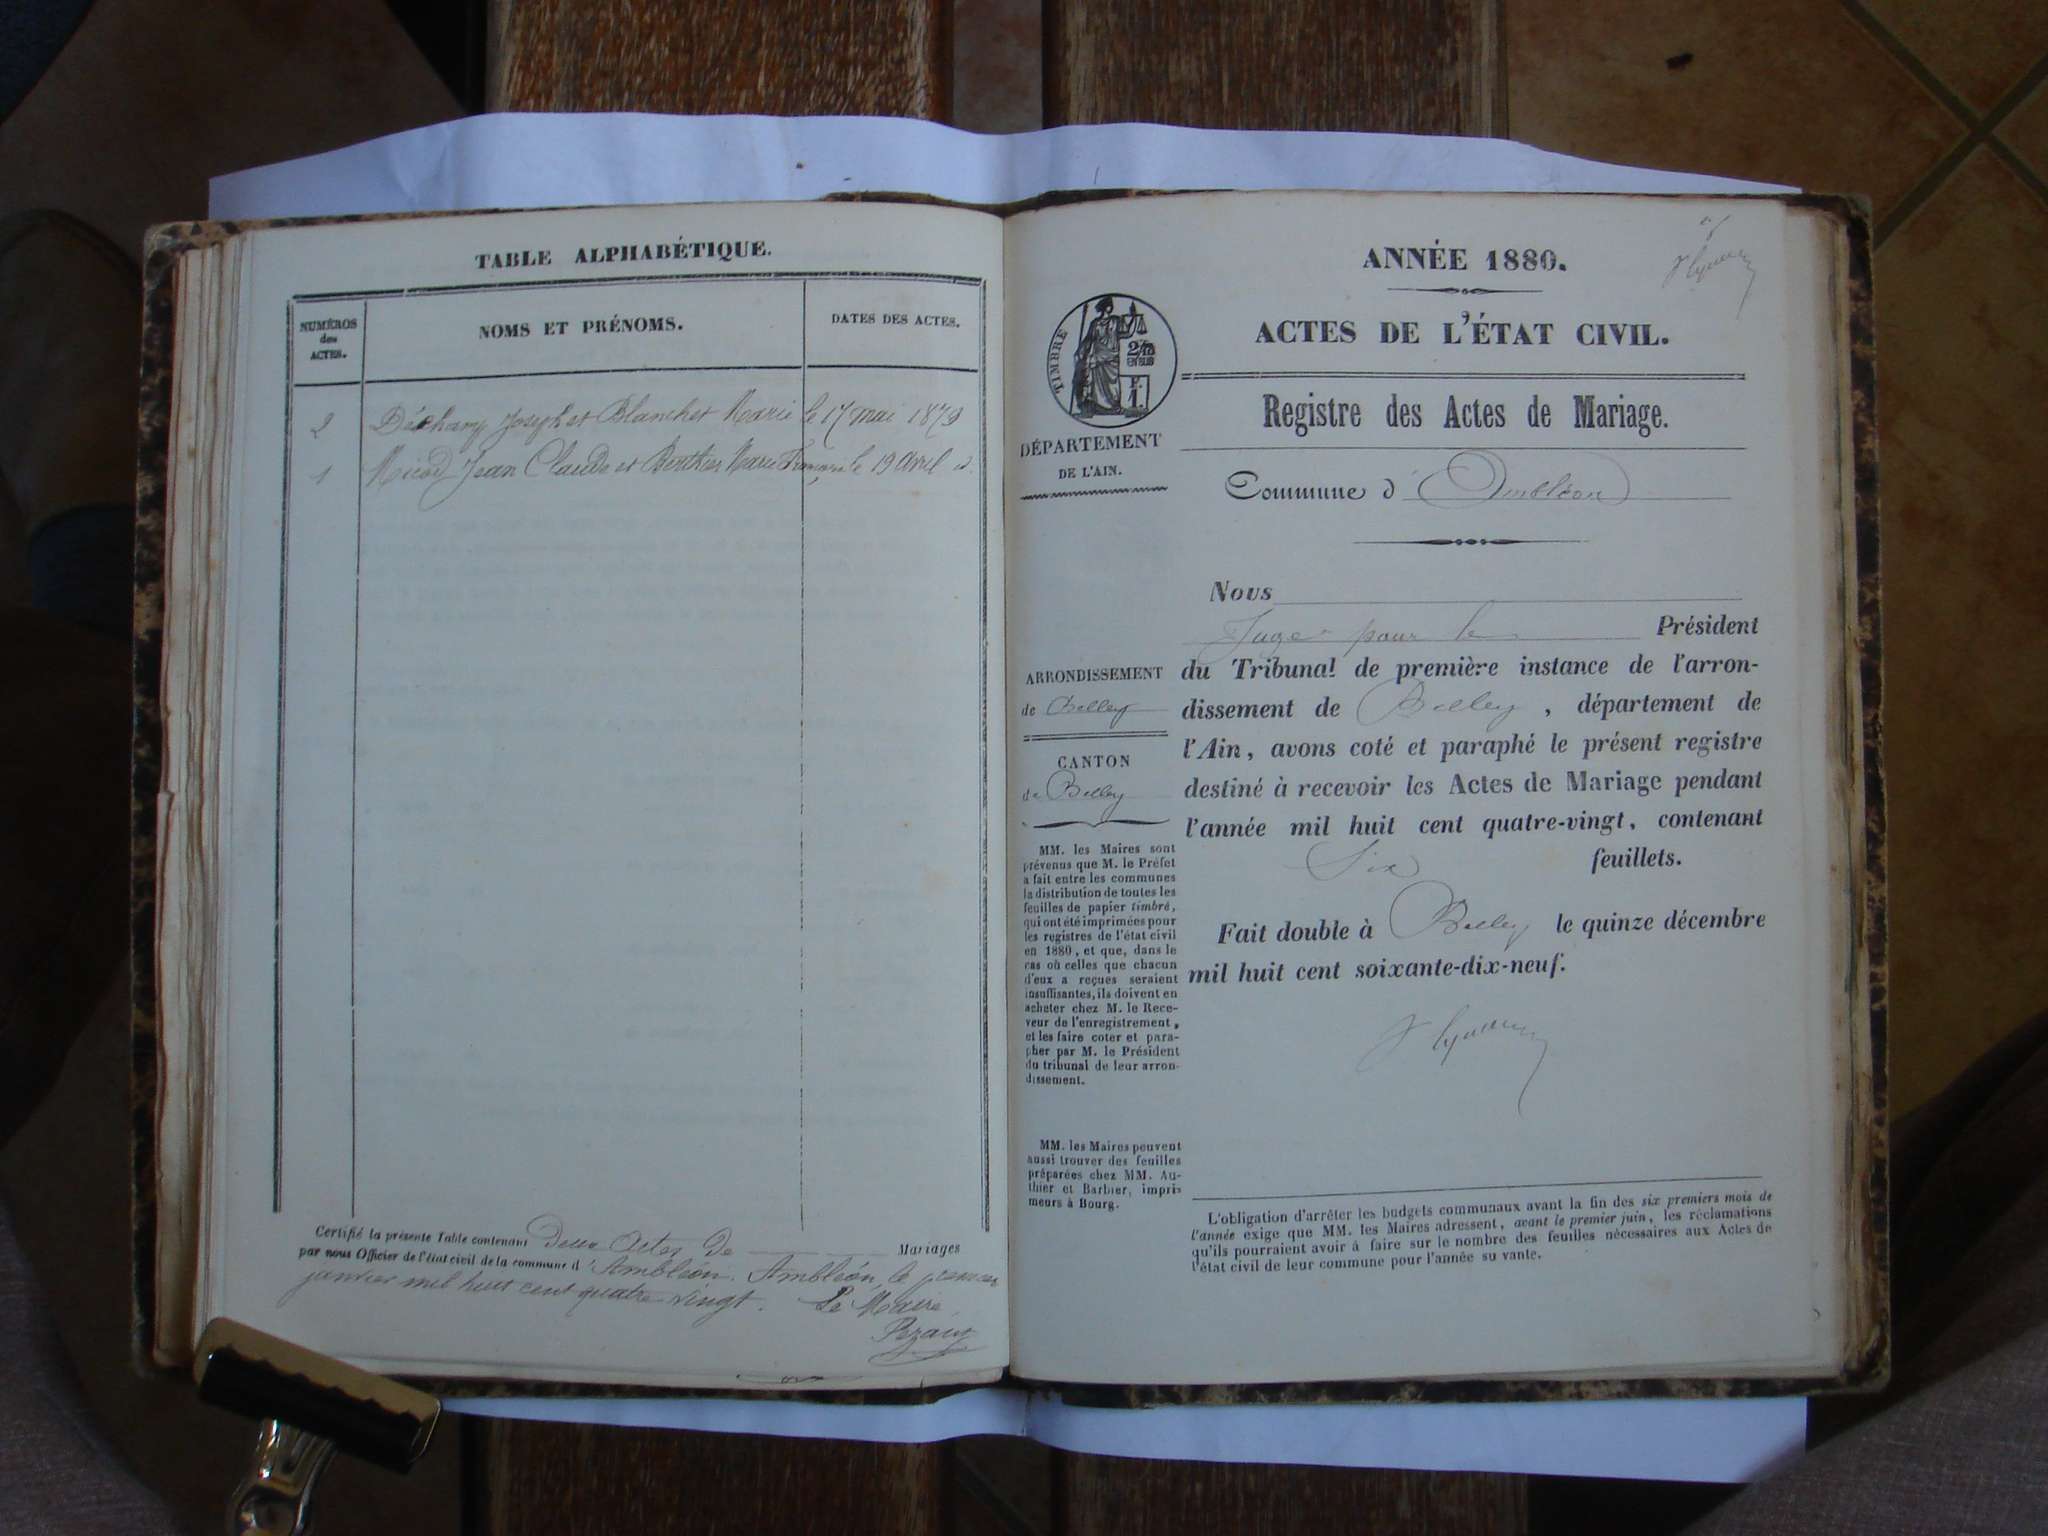 TABLE ALPHABÉTIQUE.
NUMÉROS
des
ACTES.
NOMS ET PRÉNOMS.
DATES DES ACTES.
2 Déchamp Joseph et Blanchet Marie le 17 mai 1879
1 Micod Jean Claude et Berthier Marie le 19 Avril id.
Certifié la présente Table contenant Deux Actes De Mariages
par nous Officier de l'état civil de la commune d'Ambléon. Ambléon, le premier
janvier mil huit cent quatre-vingt. Le Maire,
ANNÉE 1880.
ACTES DE L'ÉTAT CIVIL.
Registre des Actes de Mariage.
Commune d'Ambléon
TIMBRE
2/10
EN SUS
F.
1.
DÉPARTEMENT
DE L'AIN.
ARRONDISSEMENT
de Belley
CANTON
de Belley
MM. les Maires sont
prévenus que M. le Préfet
a fait entre les communes
la distribution de toutes les
feuilles de papier timbré,
qui ont été imprimées pour
les registres de l'état civil
en 1880, et que, dans le
cas où celles que chacun
d'eux a reçues seraient
insuffisantes, ils doivent en
acheter chez M. le Rece-
veur de l'enregistrement,
et les faire coter et para-
pher par M. le Président
du tribunal de leur arron-
dissement.
MM. les Maires peuvent
aussi trouver des feuilles
préparées chez MM. Au-
thier et Barbier, impri-
meurs à Bourg.
Nous
Juge pour le Président
du Tribunal de première instance de l'arron-
dissement de Belley, département de
l'Ain, avons coté et paraphé le présent registre
destiné à recevoir les Actes de Mariage pendant
l'année mil huit cent quatre-vingt, contenant
Six feuillets.
Fait double à Belley le quinze décembre
mil huit cent soixante-dix-neuf.
L'obligation d'arrêter les budgets communaux avant la fin des six premiers mois de
l'année exige que MM. les Maires adressent, avant le premier juin, les réclamations
qu'ils pourraient avoir à faire sur le nombre des feuilles nécessaires aux Actes de
l'état civil de leur commune pour l'année su vante.